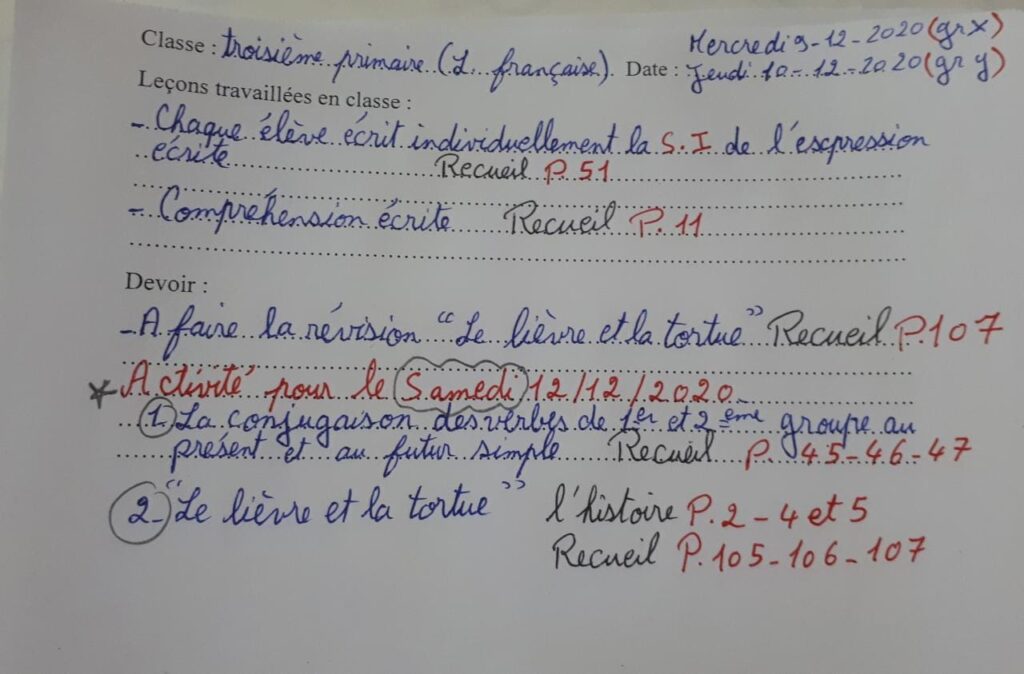 Classe : troisième primaire (L. française). Date : Mercredi 9-12-2020 (gr x)
Jeudi 10-12-2020 (gr y)
Leçons travaillées en classe :
- Chaque élève écrit individuellement la S.I de l'expression
écrite Recueil P.51
- Compréhension écrite Recueil P.11
Devoir :
- A faire la révision "Le lièvre et la tortue" Recueil P.107
* Activité pour le Samedi 12/12/2020
1. La conjugaison des verbes de 1er et 2ème groupe au
présent et au futur simple Recueil P. 45-46-47
2. "Le lièvre et la tortue" l'histoire P.2-4 et 5
Recueil P.105-106-107